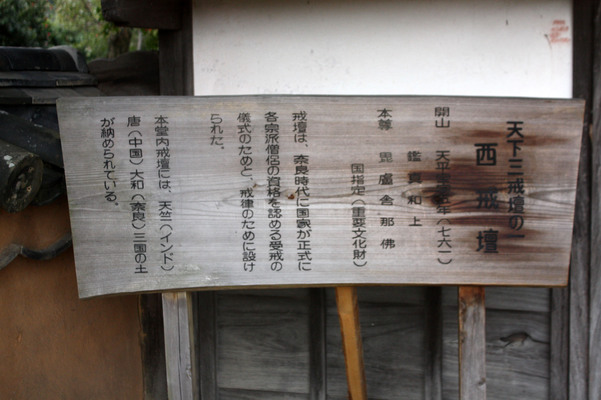 天下三戒壇の一
西戒壇
開山 天平宝字五年(七六一)
鑑真和上
本尊 毘盧舎那佛
国指定(重要文化財)
戒壇は、奈良時代に国家が正式に
各宗派僧侶の資格を認める受戒の
儀式のためと、戒律のために設け
られた。
本堂内戒壇には、天竺(インド)
唐(中国)大和(奈良)三国の土
が納められている。